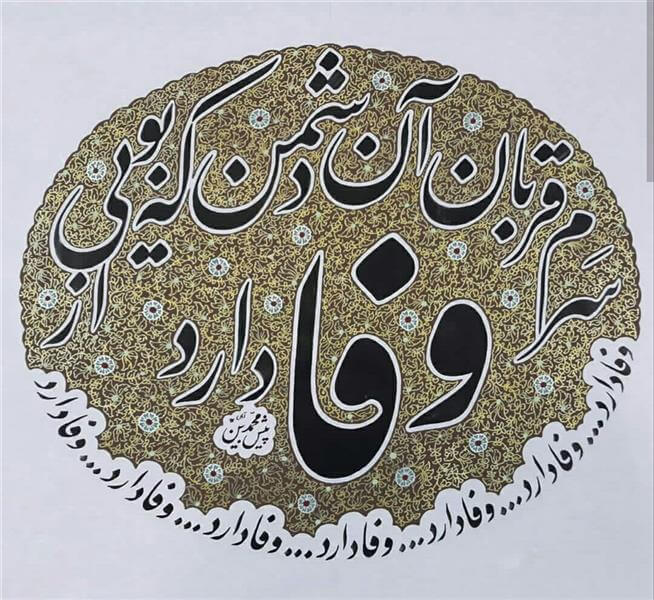 سرم قربان آن دشمن که بویی از
وفا دارد
وفا دارد... وفا دارد... وفا دارد... وفا دارد... وفا دارد... وفا دارد... وفا دارد... وفا دارد